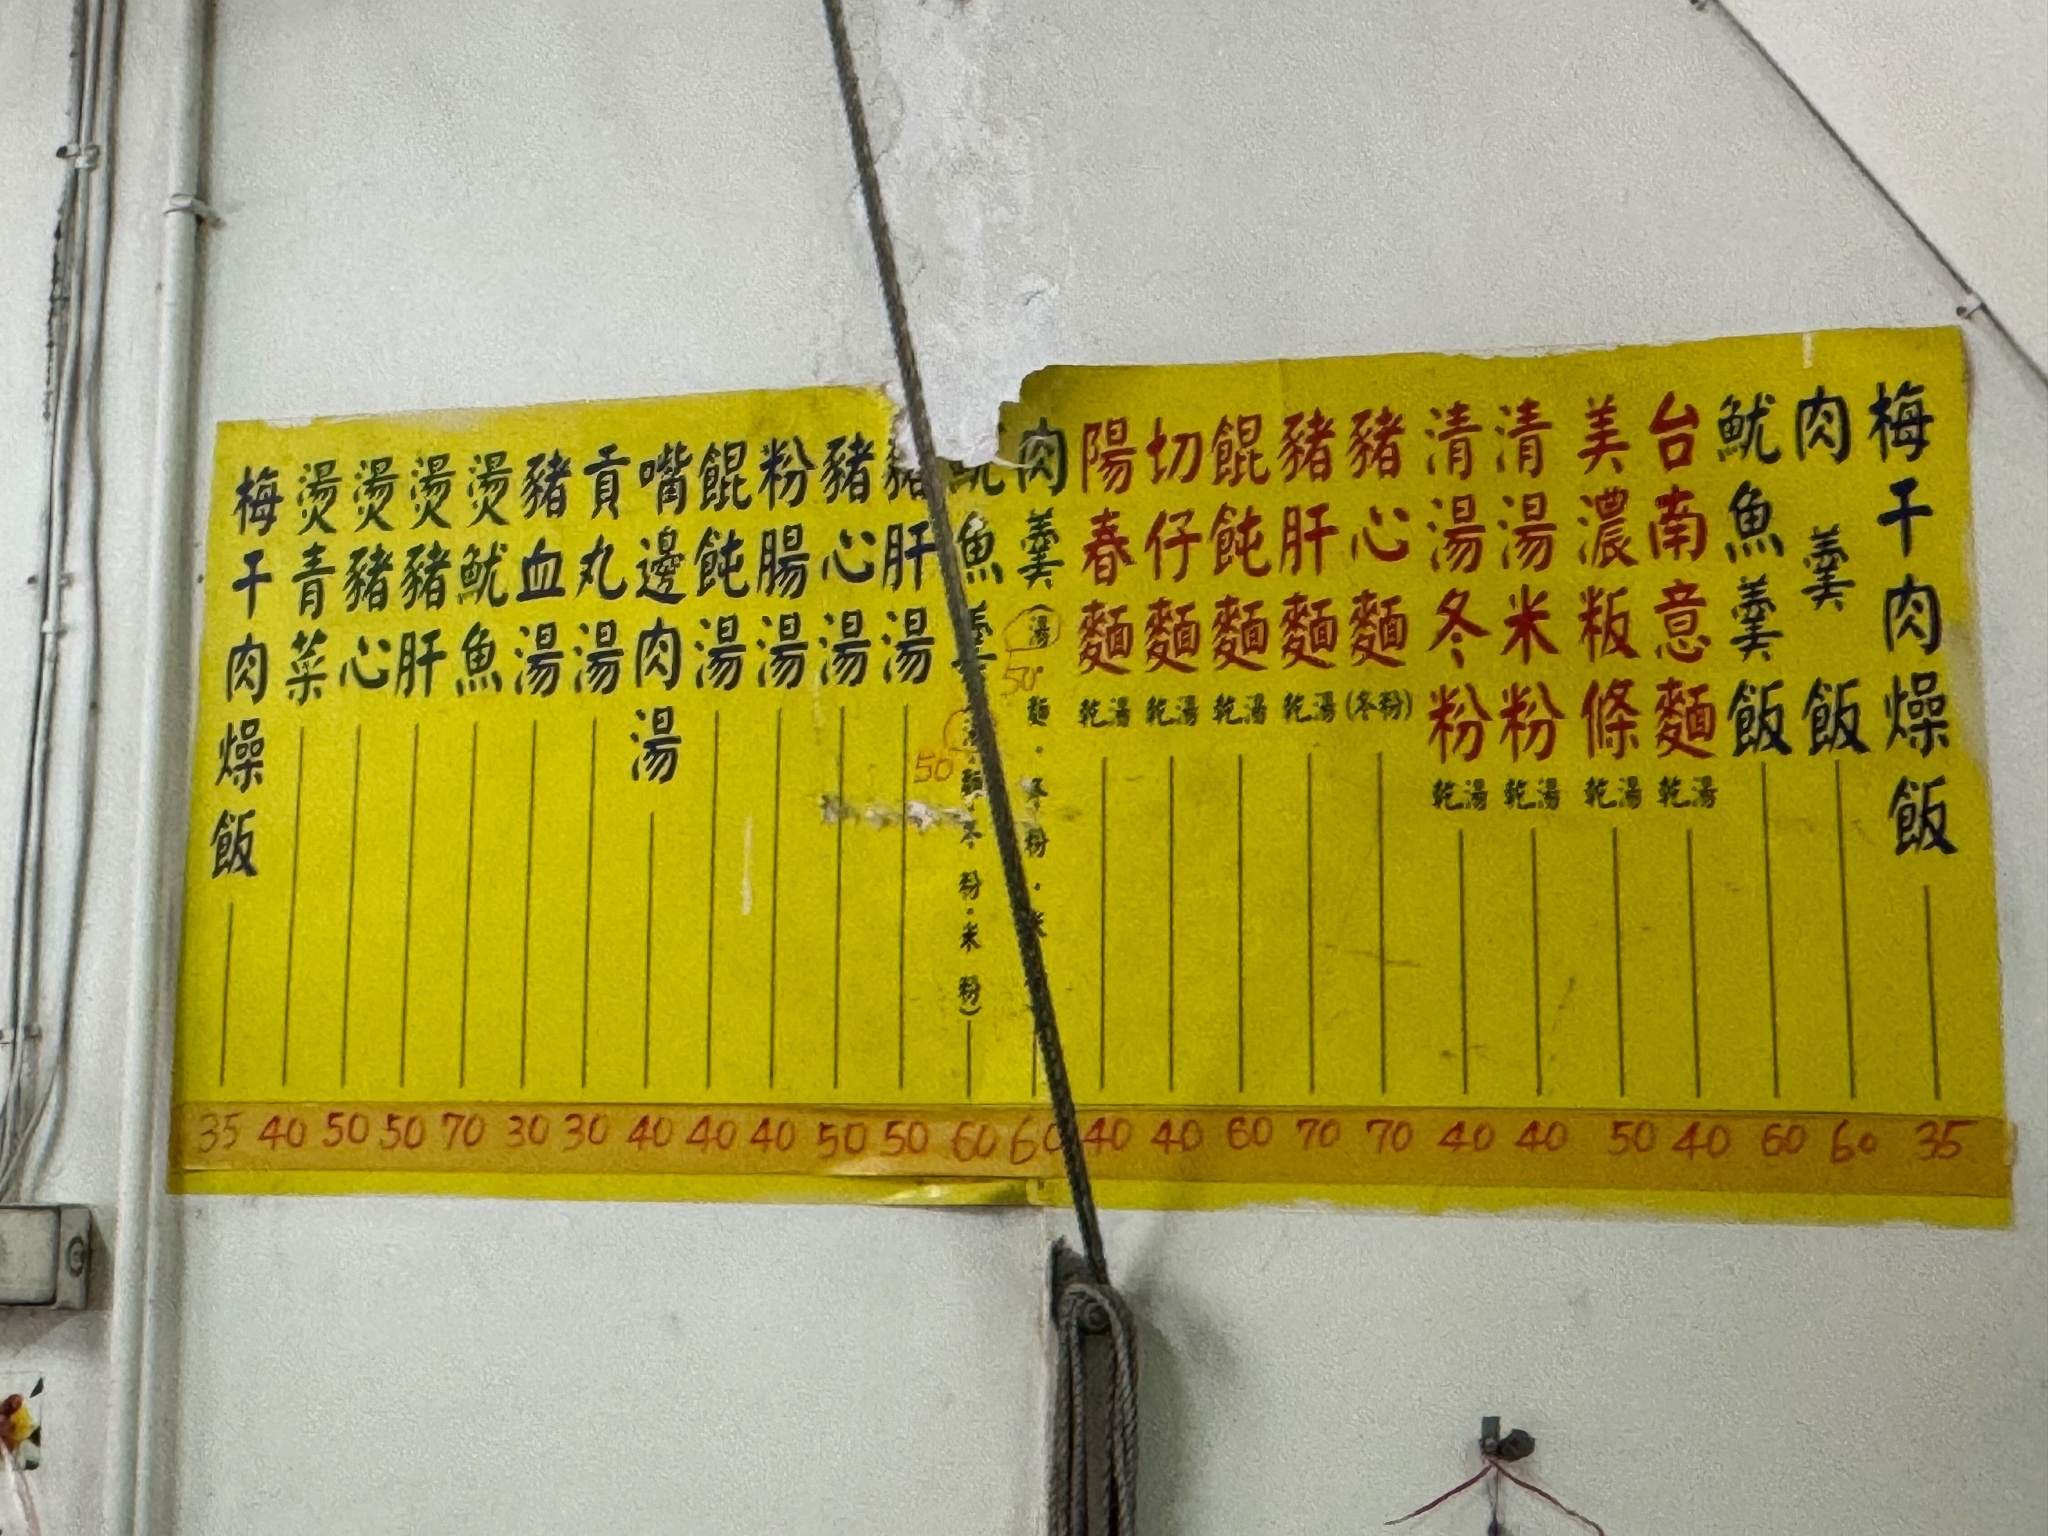 梅干肉燥飯 35
肉羹飯 60
魷魚羹飯 60
台南意麵 乾湯 40
美濃粄條 乾湯 50
清湯米粉 乾湯 40
清湯冬粉 乾湯 40
豬心麵 (冬粉) 70
豬肝麵 乾湯 70
餛飩麵 乾湯 60
切仔麵 乾湯 40
陽春麵 乾湯 40
肉羹(湯 50 麵·冬粉·米 60
魷魚羹 50 麵·冬粉·米粉) 60
豬肝湯 50
豬心湯 50
粉腸湯 40
餛飩湯 40
嘴邊肉湯 40
貢丸湯 30
豬血湯 30
燙魷魚 70
燙豬肝 50
燙豬心 50
燙青菜 40
梅干肉燥飯 35